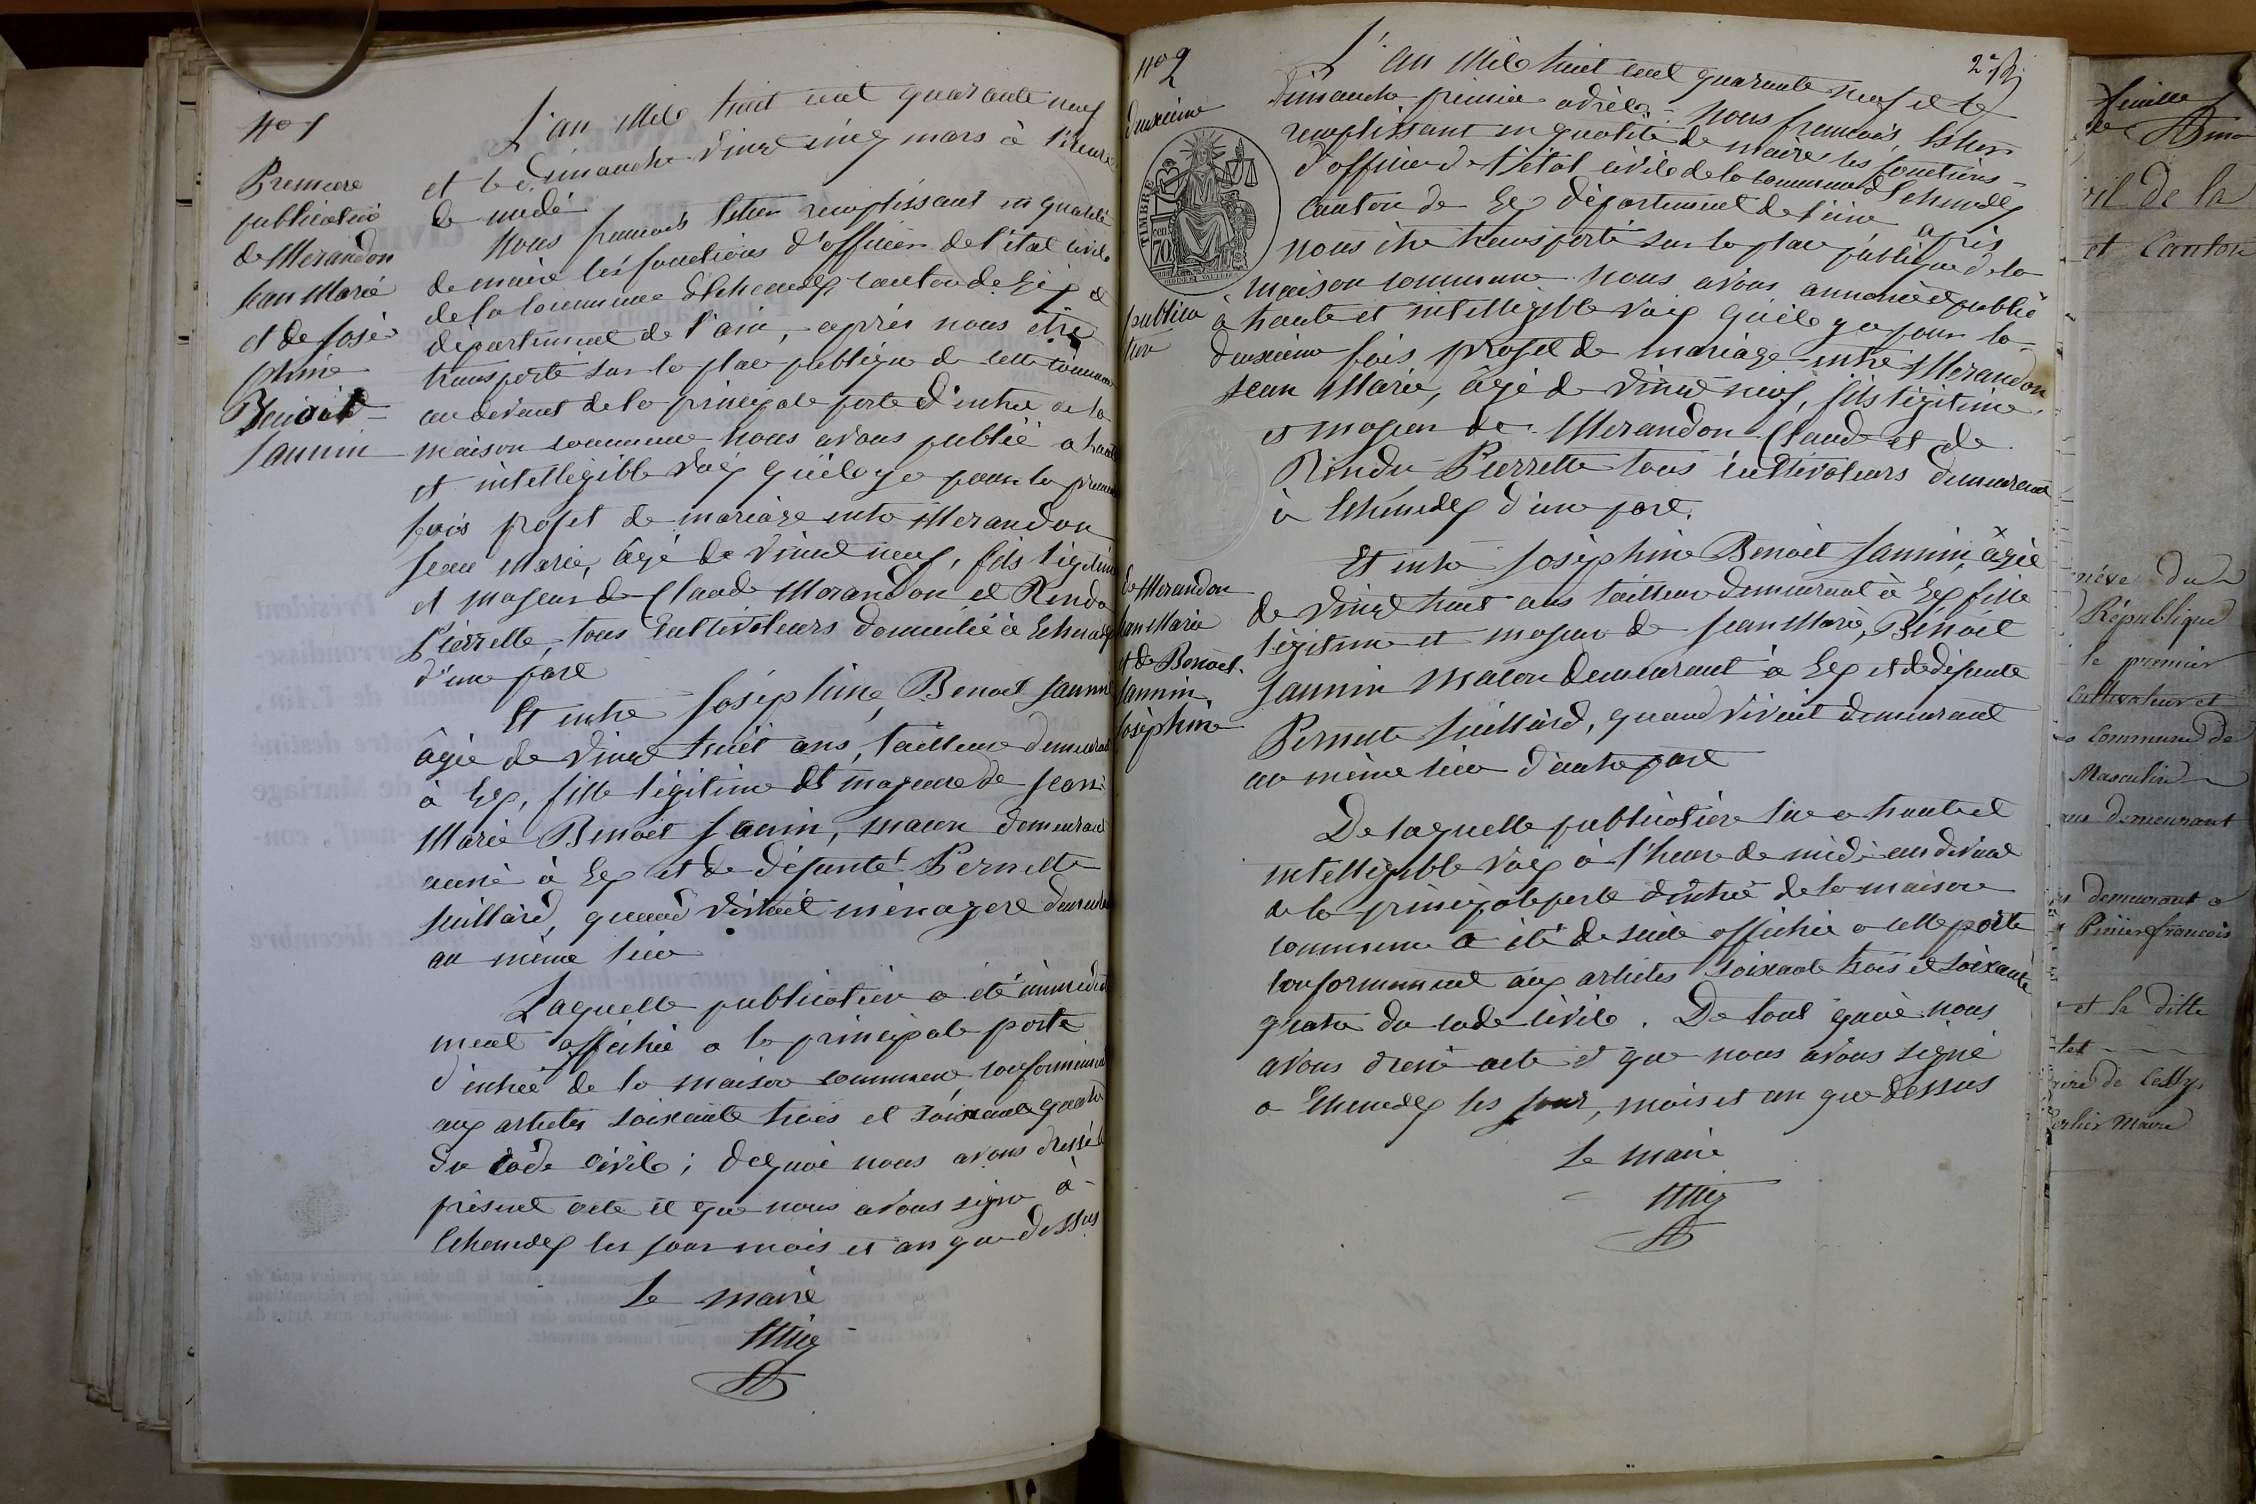 No 1
Premiere
publication
de Merandon
Jean Marie
et de José-
phine
Benoit
Jannin
L'an Mile huit cent quarante neuf
et le dimanche vingt cinq mars à l'heure
de midi
Nous francois remplissant en qualité
de maire les fonctions d'officier de l'état civile
de la Commune d'Echenevex canton de Gex et
département de l'ain, après nous être
transporté sur la place publique de cette commune
au devant de la principale porte d'entrée de la
maison commune nous avons publié a haute
et intelligible voix qu'il y a pour la premiere
fois projet de mariage entre Merandon
Jean Marie, âgé de vingt neuf, fils légitime
et majeur de Claude Merandon et Rendu
Pierrette, tous cultivateurs domicilié à Echenevex
d'une part
Et entre Joséphine Benoit Jannin
âgée de vingt huit ans, tailleuse demeurant
à Gex, fille légitime et majeure de Jean
Marie Benoit Janin, macon demeurant
à Gex et de défunte Pernette
quand vivait ménagere demeurant
au même lieu
Laquelle publication a été immediate
ment affichée a la principale porte
d'entrée de la maison commune, conformément
aux articles soixante trois et soixante quatre
du code civile ; dequoi nous avons dressé le
présent acte et que nous avons signé à
Echenevex les jour mois et an que dessus
Le maire
No 2
2e f
deuxieme
TIMBRE
70 cen
publica
tion
de Merandon
Jean Marie
et de Benoit
Jannin
Joséphine
L'an Mile huit cent quarante neuf et le
dimanche premier avril. Nous francois
remplissant en qualité de maire les fonctions
d'officier de l'état civile de la commune d'Echenevex
Canton de Gex département de l'ain après
nous être transporté sur la place publique de la
maison commune nous avons annoncé et publié
à haute et intelligible voix qu'il y a pour la
deuxième fois projet de mariage entre Merandon
Jean Marie, âgé de vingt neuf, fils légitime
et majeur de Merandon Claude et de
Rendu Pierrette tous cultivateurs demeurant
à Echenevex d'une part.
Et entre Joséphine Benoit Jannin, âgée
de vingt huit ans tailleuse demeurant à Gex fille
légitime et majeure de Jean Marie, Benoit
Jannin Macon demeurant à Gex et de défunte
Pernette quand vivait demeurant
au même lieu d'autre part
De laquelle publication lue a haute et
intelligible voix à l'heure de midi au devant
de la principale porte d'entrée de la maison
commune a été de suite affichée a cette porte
conformément aux articles soixante trois et soixante
quatre du code civile. De tout quoi nous
avons dressé acte et que nous avons signé
a Echenevex les jour, mois et an que dessus
Le maire
feuille
ril de la
et Canton
République
le premier
Cultivateur et
Commune de
Masculin
demeurant
demeurant a
francois
et la ditte
de Cessy
Maire